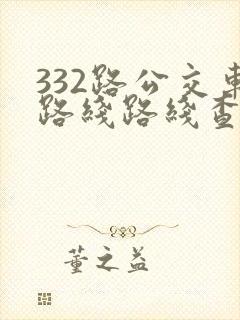 332路公交车
路线路线查
董之益